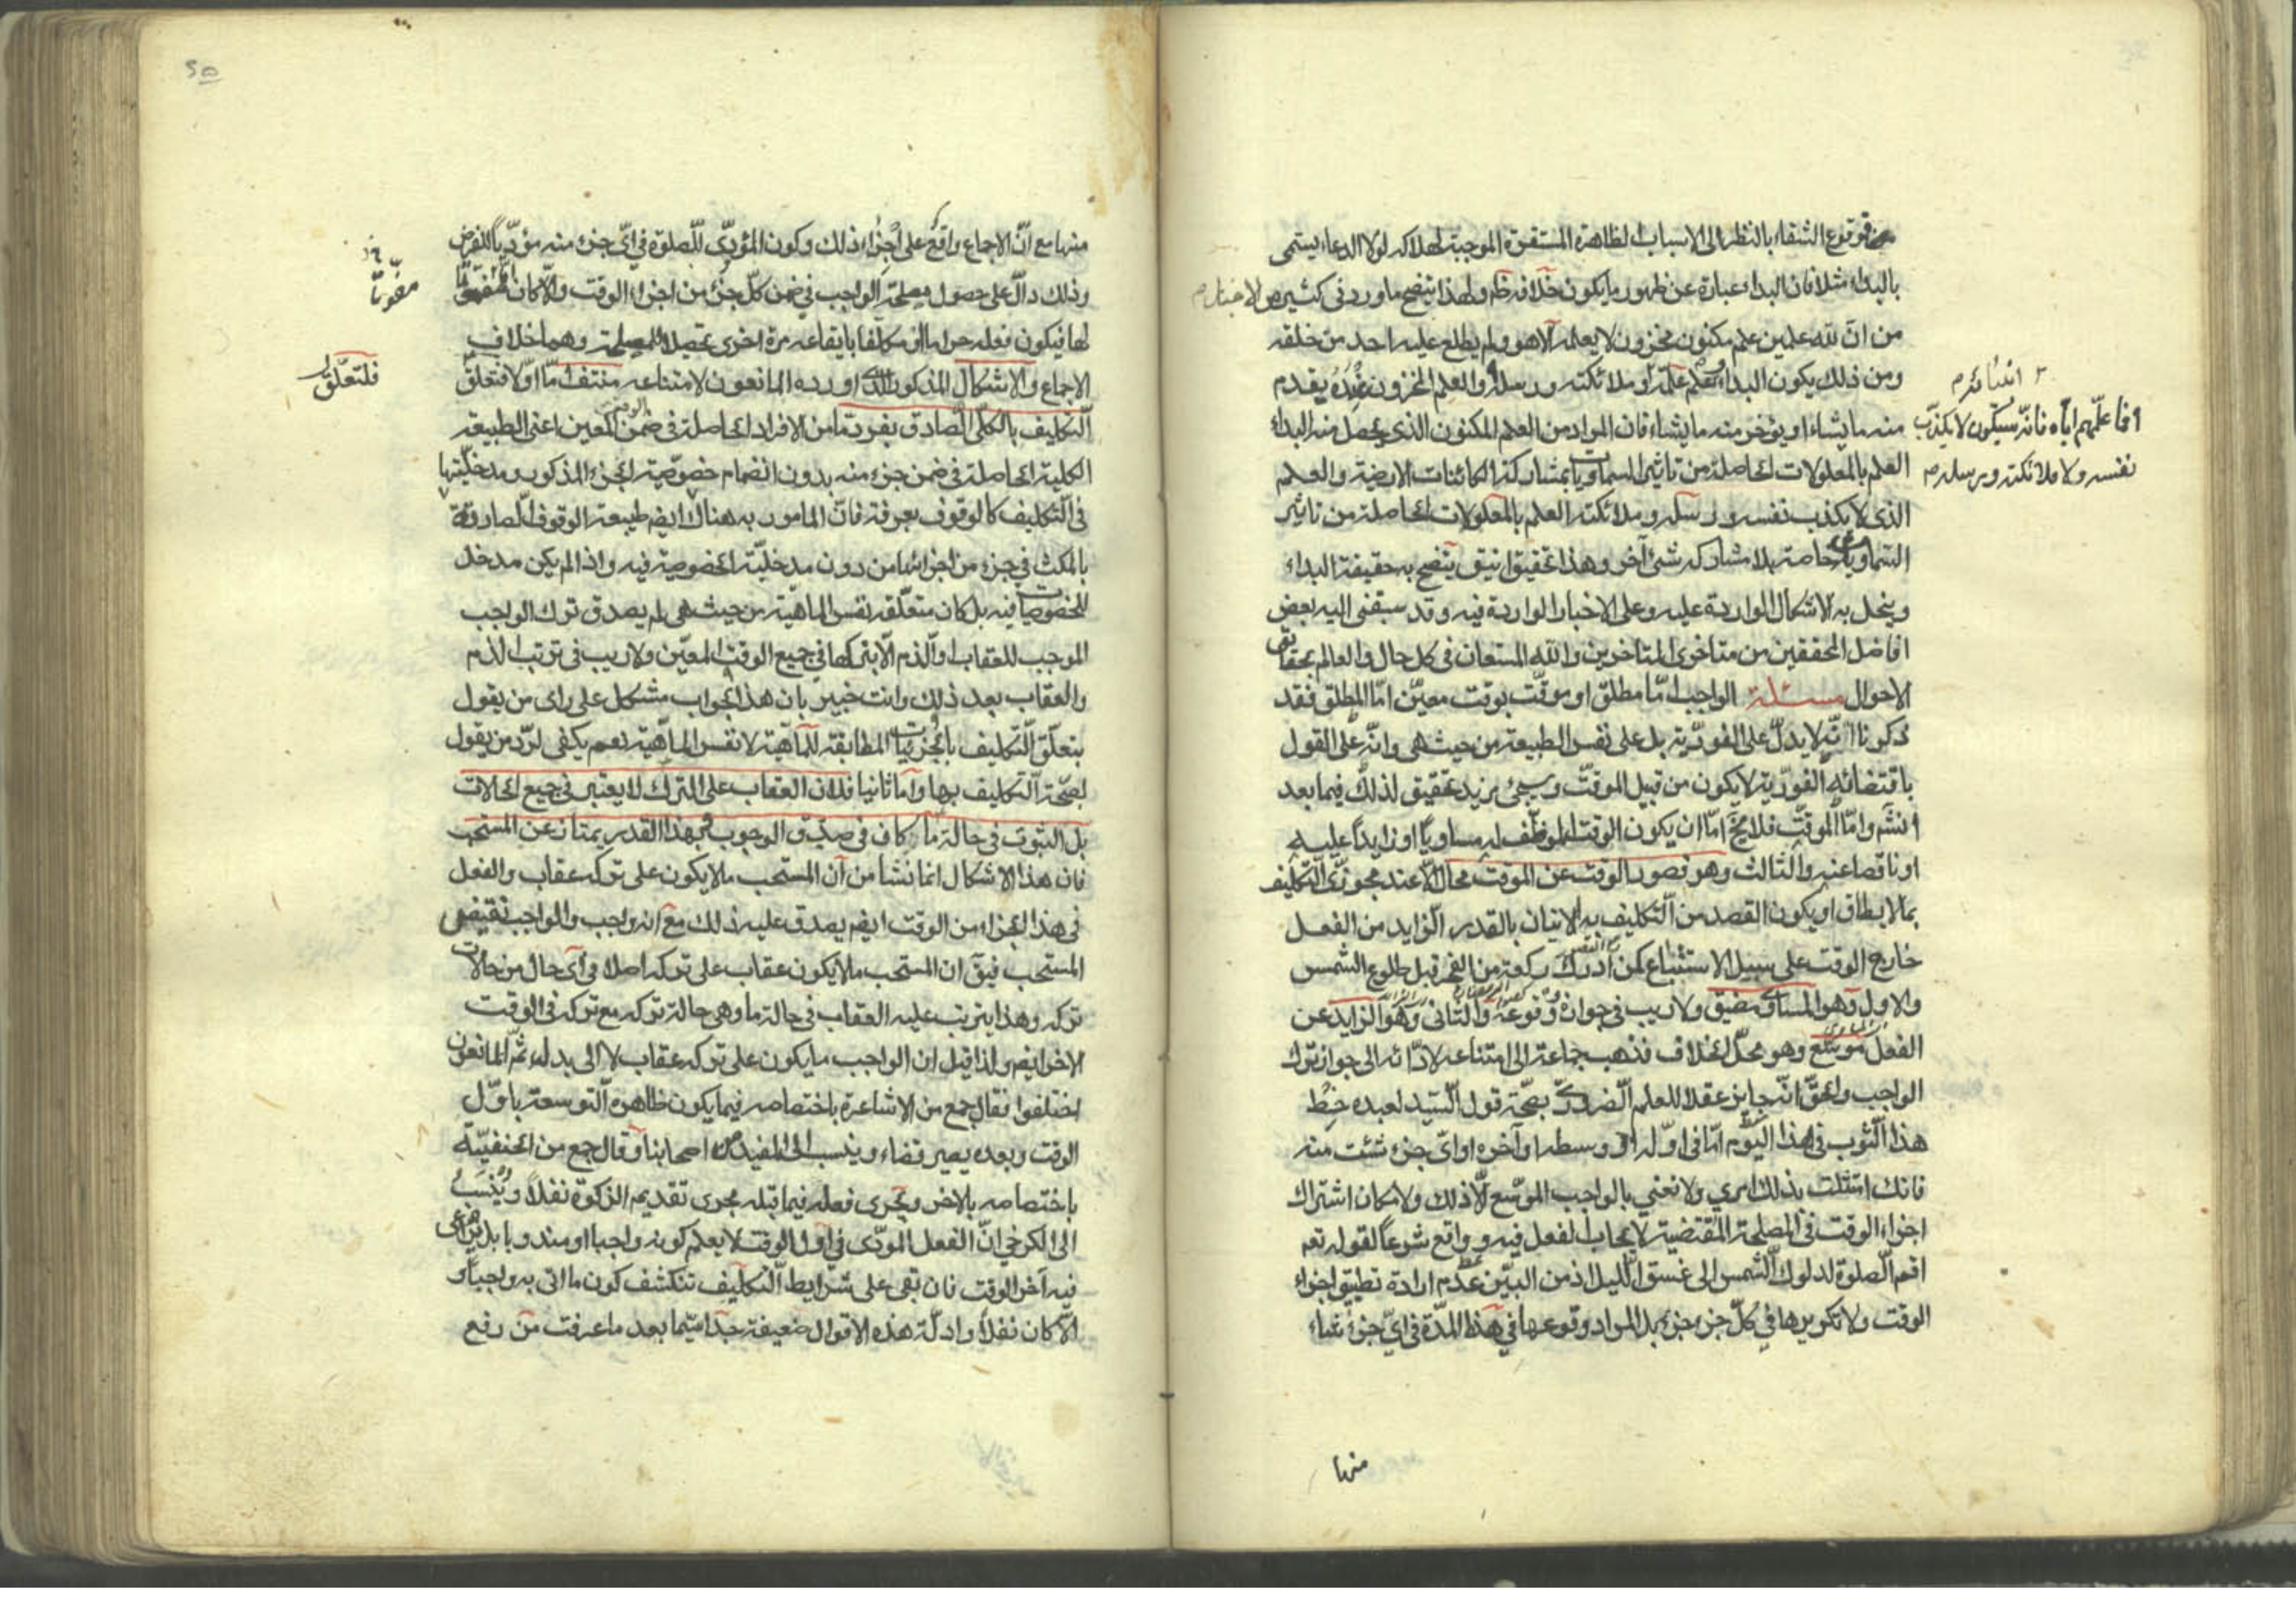 فوقوع الشفاء بالنظر الى الاسباب الظاهرة المستقرة الموجبة لهلاكه لولا الدعاء يسمى
بالبداء مثلا فان البداء عبارة عن ظهور ما يكون خلافه ظم ولهذا يتضح ما ورد فى كثير من الاخبار م
من ان لله علمين علم مكنون مخزون لا يعلمه الا هو ولم يطلع عليه احد من خلقه
ومن ذلك يكون البداء وعلم علمه ملائكته ورسله والعلم المخزون عنده يقدم
٢ انبيائه م
منه ما يشاء او يؤخر منه ما يشاء فان المراد من العلم المكنون الذى يحصل منه البداء
فما علمهم اياه فانه سيكون لا يكذب
العلم بالمعلولات الحاصلة من تاثير السماويات بمشاركة الكائنات الارضية والعلم
نفسه ولا ملائكته ورسله م
الذى لا يكذب نفسه ورسله وملائكته العلم بالمعلولات الحاصلة من تاثير
السماويات خاصة بلا مشاركه شئ آخر وهذا تحقيق انيق يتضح به حقيقة البداء
وينحل به الاشكال الواردة عليه وعلى الاخبار الواردة فيه وقد سبقنى اليه بعض
افاضل المحققين من متاخرى المتاخرين والله المستعان فى كل حال والعالم بحقايق
الاحوال مسئلة الواجب امّا مطلق او موقّت بوقت معيّن امّا المطلق فقد
ذكرنا انّه لا يدلّ على الفوريّة بل على نفس الطبيعة من حيث هى وانّه على القول
باقتضائه الفوريّة لا يكون من قبيل الموقّت وسيجئ مزيد تحقيق لذلك فيما بعد
انشم وامّا الموقّت فلا يخ امّا ان يكون الوقت الموظّف له مساوياً او زايداً عليه
او ناقصا عنه والثالث وهو قصور الوقت عن الموقت محال الّا عند مجوزى التكليف
بما لا يطاق او يكون القصد من التكليف به الاتيان بالقدر الزايد من الفعل
خارج الوقت على سبيل الاستتباع كمن ادرك ركعة من الفجر قبل طلوع الشمس
والاول وهو المساوى مضيق ولا ريب فى جوازه ووقوعه والثانى وهو الزايد عن
الفعل موسّع وهو محلّ الخلاف فذهب جماعة الى امتناعه لادّائه الى جواز ترك
الواجب والحقّ انّه جايز عقلا للعلم الضرورىّ بصحّة قول السّيد لعبده خِط
هذا الثوب فى هذا اليوم امّا فى اوّله او وسطه او آخره او اىّ جزء شئت منه
فانك امتثلت بذلك امري ولا نعني بالواجب الموسّع الّا ذلك ولامكان اشتراك
اجزاء الوقت فى المصلحة المقتضية لايجاب الفعل فيه وواقع شرعاً لقوله تعم
اقم الصلوة لدلوك الشمس الى غسق الليل اذ من البيّن عدم ارادة تطبيق اجزاء
الوقت ولا تكريرها فى كلّ جزء جزء بل المراد وقوعها فى هذه المدّة فى اىّ جزء شاء
منها
٥٥
منها مع انّ الاجماع واقع على اجزاء ذلك وكون المؤدّى للصلوة فى اىّ جزء منه مؤدّياً للفرض
وذلك دالّ على حصول مصلحة الواجب فى ضمن كلّ جزء من اجزاء الوقت والّا كان
مفوّتاً
لها فيكون فعله حراما او مكلّفا بايقاعه مرة اخرى تحصيلا للمصلحة وهما خلاف
الاجماع والاشكال المذكور الذى اورده المانعون لامتناعه منتف امّا اوّلا فتعلّق
فلتعلّق
التكليف بالكلّى الصادق بفرد مّا من الافراد الحاصلة فى ضمن الوقت المعين اعنى الطبيعة
الكلية الحاصلة فى ضمن جزء منه بدون انضمام خصوصية الجزء المذكور ومدخليّتها
فى التكليف كالوقوف بعرفة فانّ المامور به هناك ايضم طبيعة الوقوف الصادقة
بالمكث فى جزء من اجزائها من دون مدخليّة الخصوصية فيه واذا لم يكن مدخل
للخصوصيات فيه بل كان متعلّقه نفس الماهية من حيث هى لم يصدق ترك الواجب
الموجب للعقاب والذم الّا بتركها فى جميع الوقت المعيّن ولا ريب فى ترتب الذم
والعقاب بعد ذلك وانت خبير بان هذا الجواب مشكل على راى من يقول
بتعلّق التكليف بالجزئيات المطابقة للماهية لا نفس الماهية نعم يكفى لردّ من يقول
لصحّة التكليف بها وامّا ثانيا فلان العقاب على الترك لا يعتبر فى جميع الحالات
بل الثبوت فى حالة مّا كاف فى صدق الوجوب فبهذا القدر يمتاز عن المستحب
فان هذا الاشكال انما نشأ من ان المستحب ما لا يكون على تركه عقاب والفعل
فى هذا الجزاء من الوقت ايضم يصدق عليه ذلك مع انه واجب والواجب نقيض
المستحب فيق ان المستحب ما لا يكون عقاب على تركه اصلا فى اىّ حال من حالات
تركه وهذا يترتب عليه العقاب فى حالة ما وهى حالة تركه مع تركه فى الوقت
الاخر ايضم ولذا قيل ان الواجب ما يكون على تركه عقاب لا الى بدله ثمّ المانعون
اختلفوا فقال جمع من الاشاعرة باختصاصه فيما يكون ظاهره التوسعة باوّل
الوقت وبعده يصير قضاء وينسب الى المفيد من اصحابنا وقال جمع من الحنفيّة
باختصاصه بالاخر ويجرى فعله فيما قبله مجرى تقديم الزكوة نفلاً ويُنسَبُ
الى الكرخي انّ الفعل المؤدّى فى اول الوقت لا يعلم كونه واجبا او مندوبا بل يراعى
فيه آخر الوقت فان بقى على شرايط التكليف تنكشف كون ما اتى به واجباً و
الّا كان نفلاً وادلّة هذه الاقوال ضعيفة جدّا سيّما بعد ما عرفت من رفع